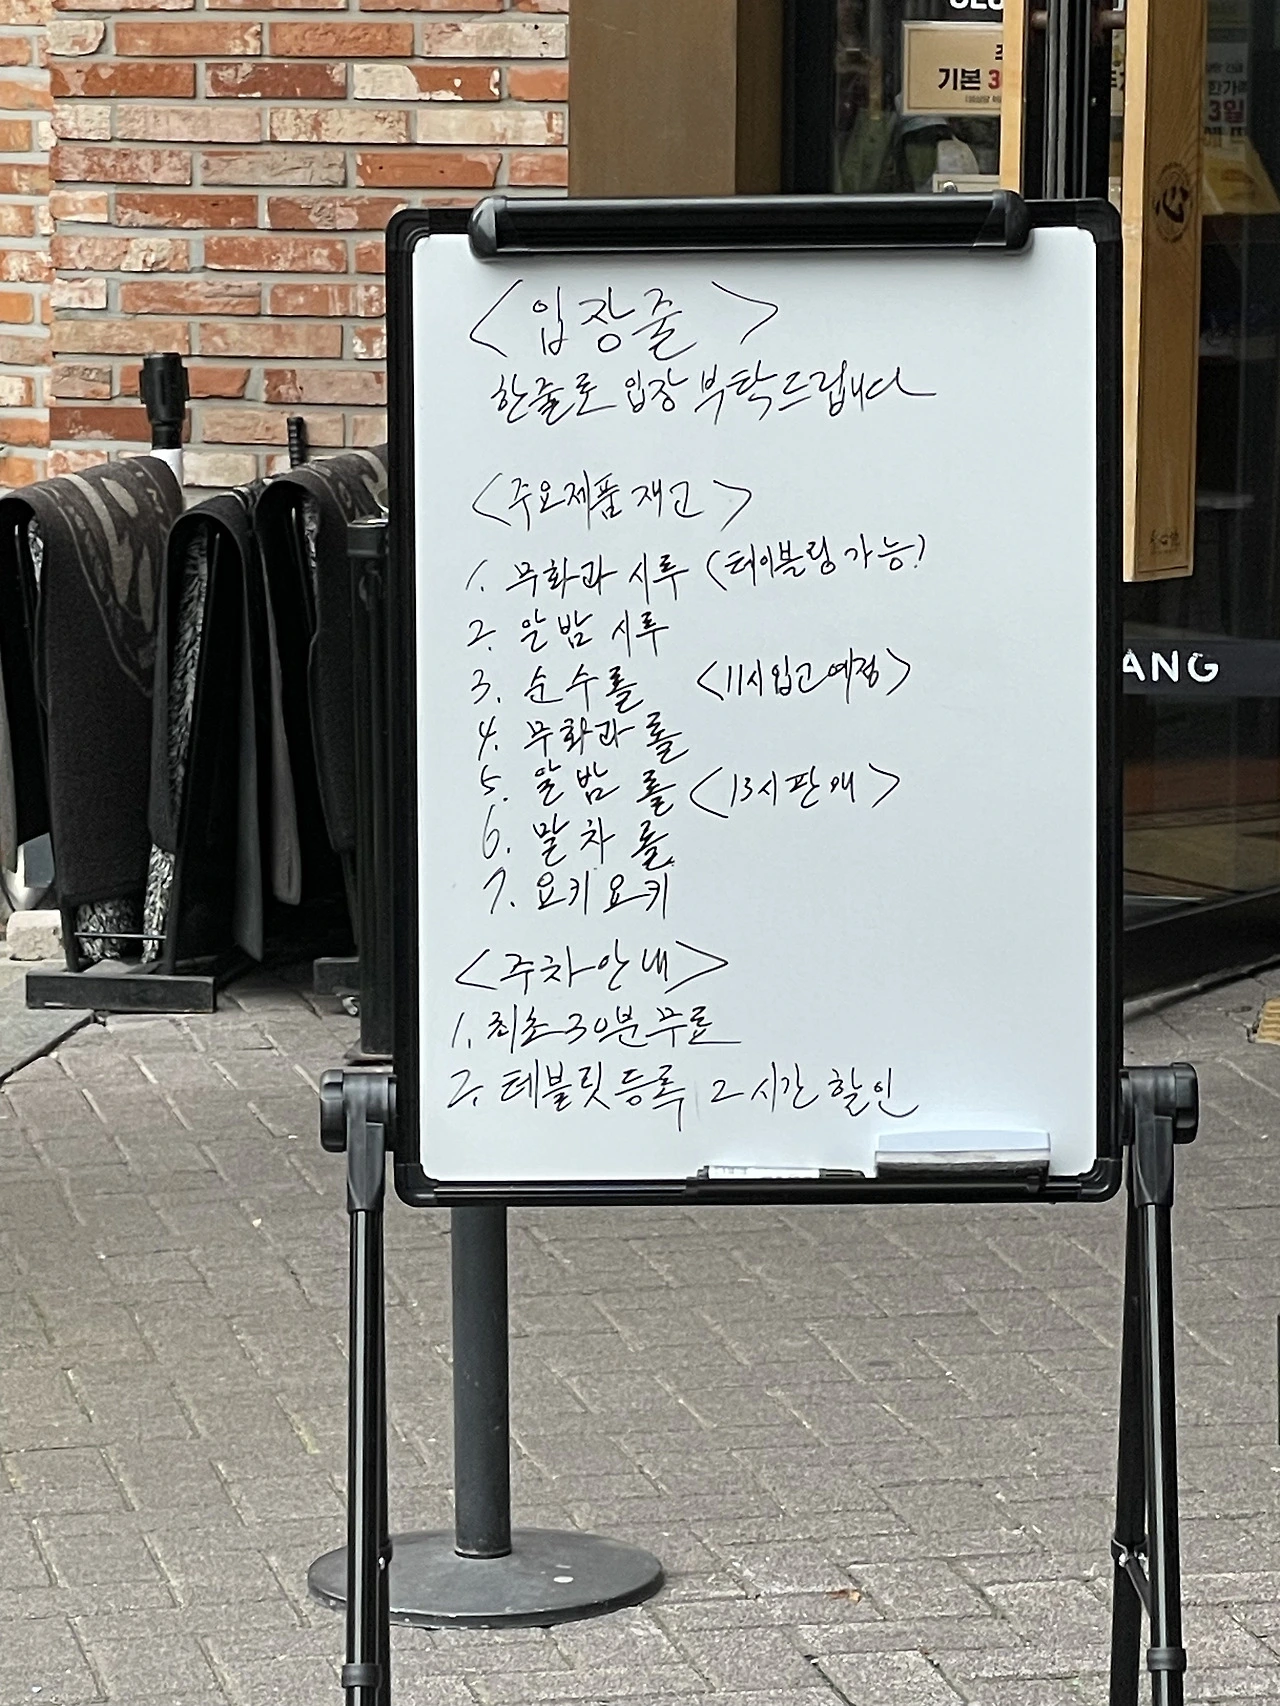 기본 3
3일
<입장줄>
한줄로 입장 부탁드립니다
<주요제품 재고>
1. 무화과 시루 (테이블링 가능)
2. 알밤 시루
3. 순수롤 <11시입고예정>
4. 무화과 롤
5. 알밤 롤 <13시 판매>
6. 말차 롤
7. 요키요키
<주차안내>
1. 최초30분무료
2. 태블릿등록 2시간 할인
ANG
心